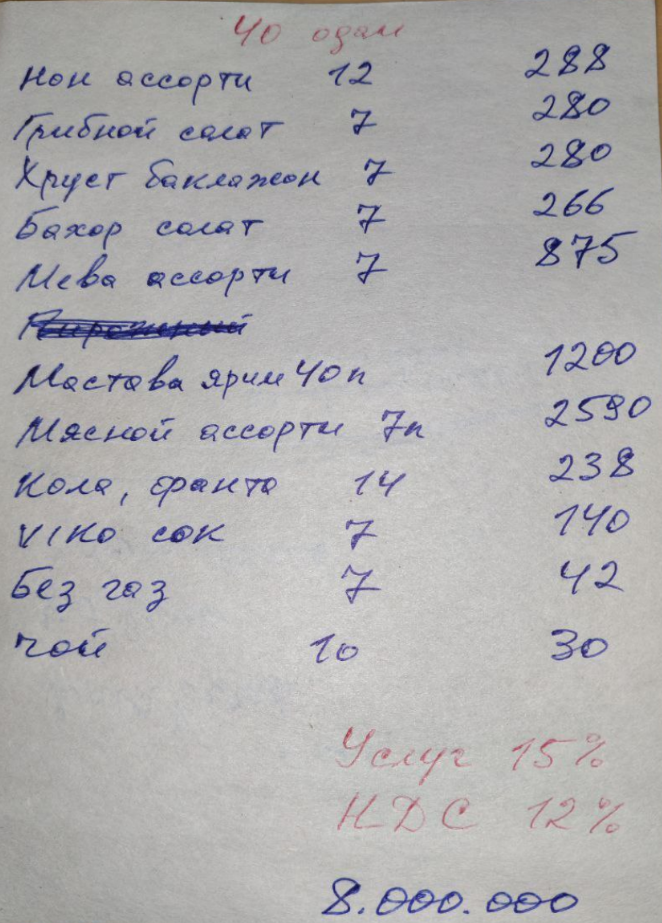 40 одам
Нон ассорти 12 288
Грибной салат 7 280
Хруст баклажон 7 280
Бахор салат 7 266
Мева ассорти 7 875
Мастава ярим 40п 1200
Мясной ассорти 7п 2590
Кола, фанта 14 238
VIKO сок 7 140
Без газ 7 42
Чой 10 30
Услуг 15%
НДС 12%
8.000.000